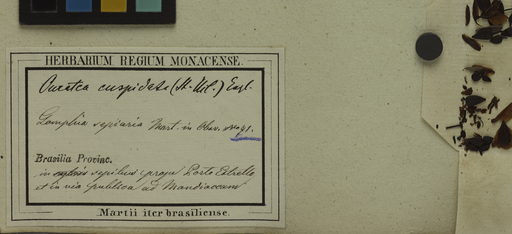 HERBARIUM REGIUM MONACENSE.
Ouratea cuspidata (St. Hil.) Engl.
Gomphia sepiaria Mart. in Obs. 
Brasilia Provinc.
in sepibus prope Porto Estrella
et in via publica ad Mandioccam
Martii iter brasiliense.